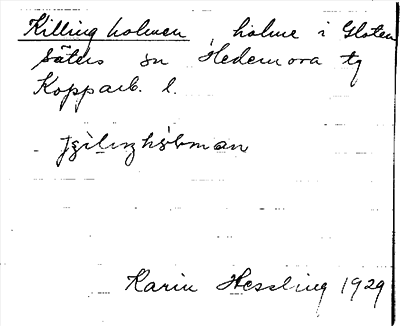 Killingholmen, holme i Gloten
Säters sn Hedemora tg
Kopparb. l.
Karin Hessling 1929